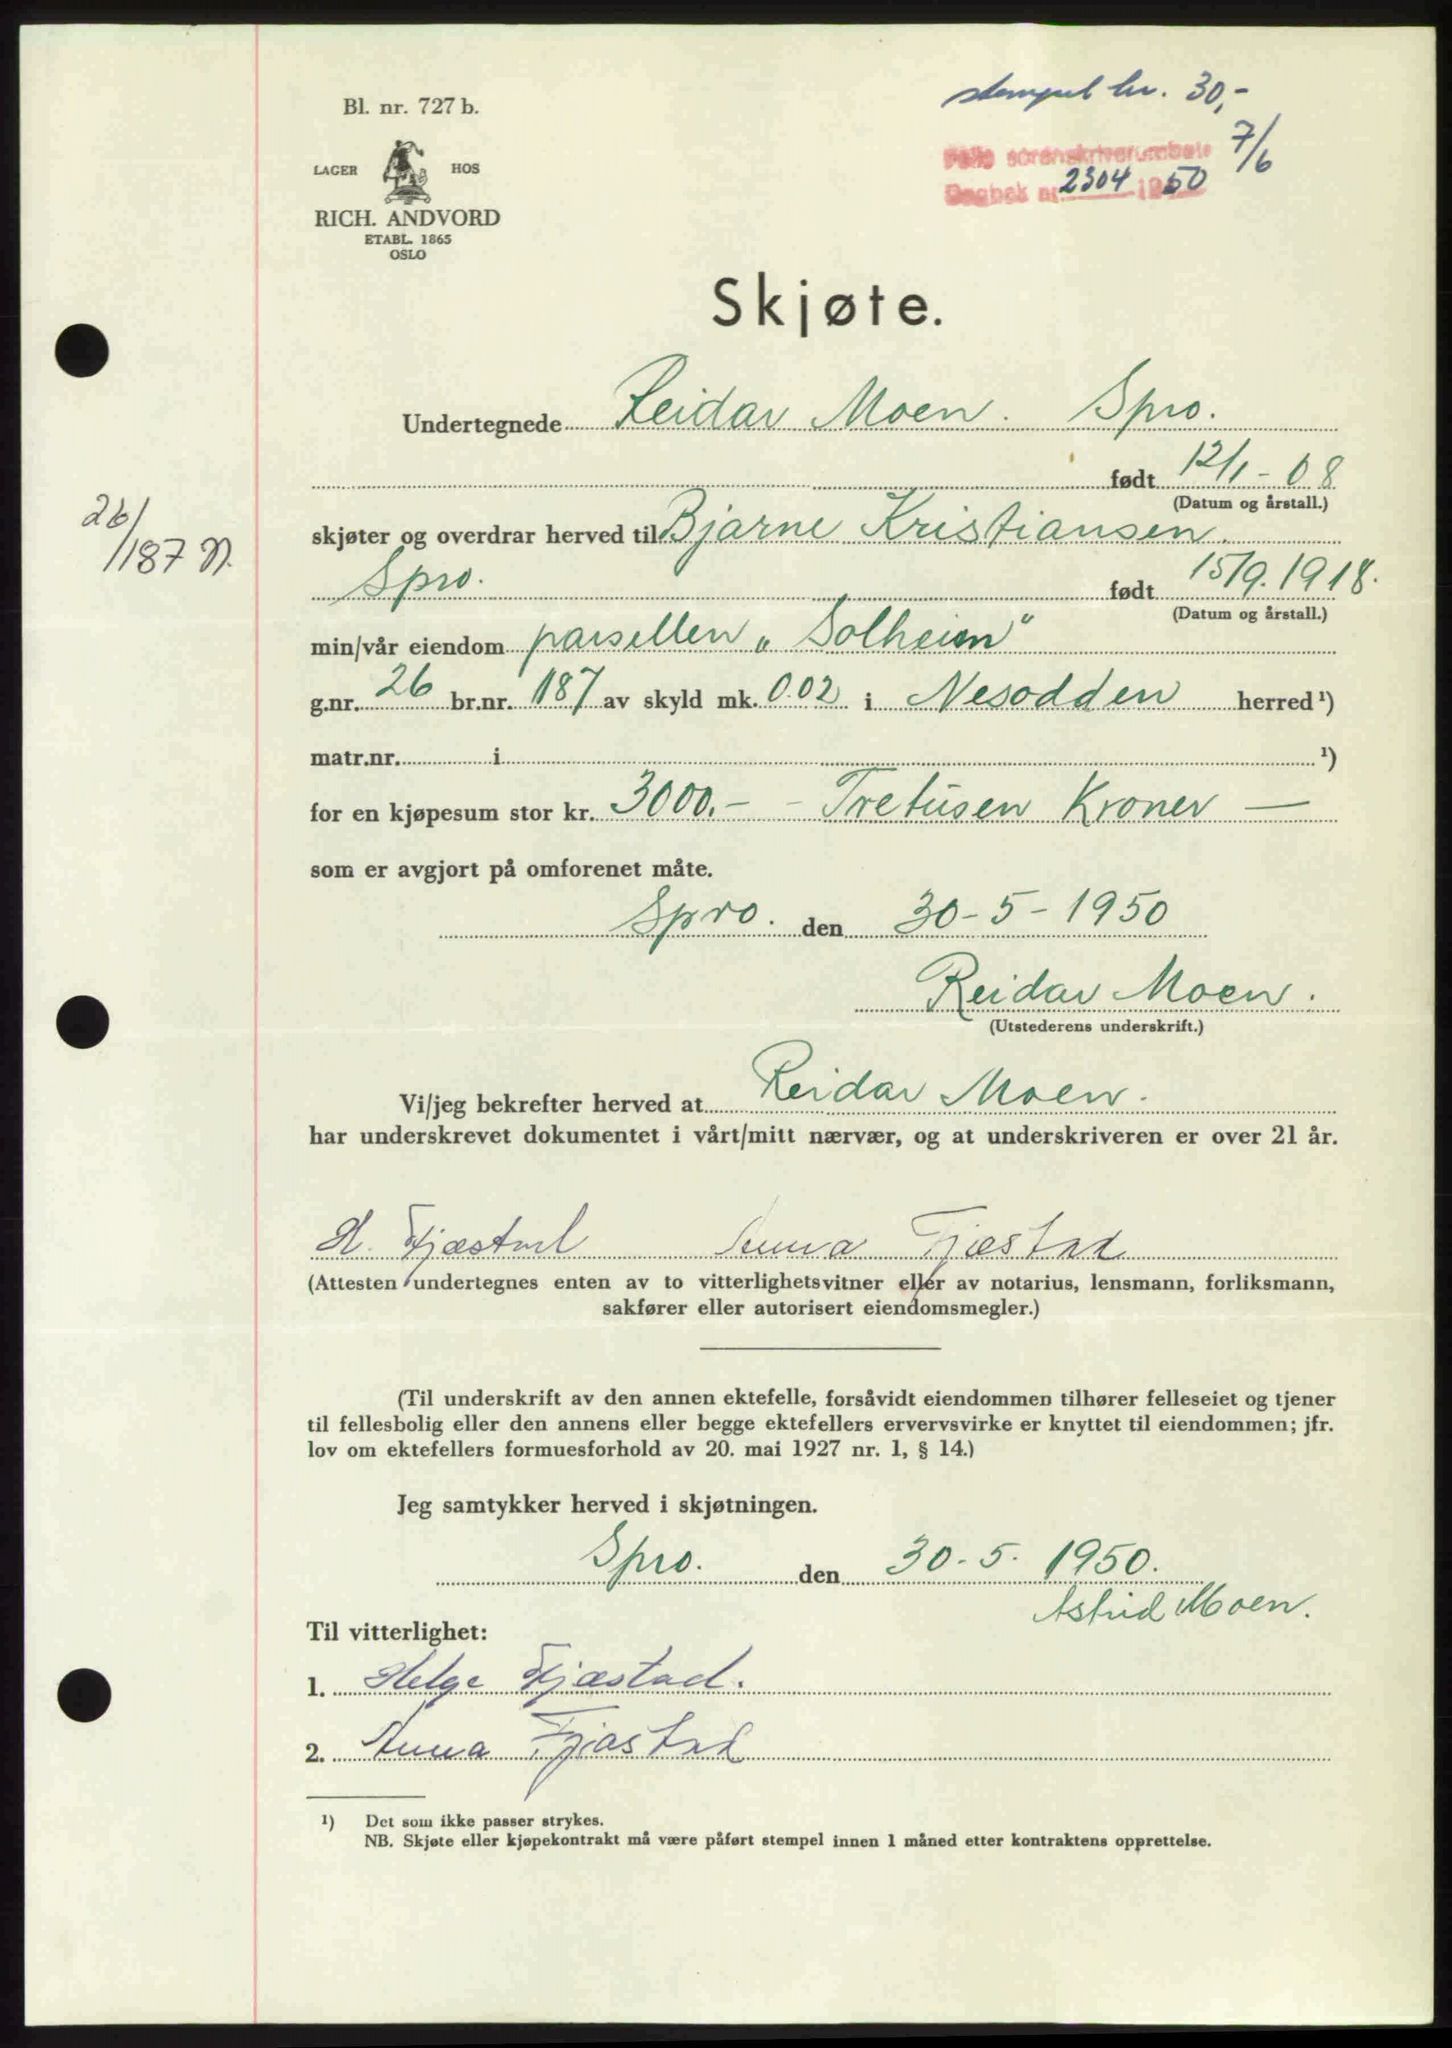 stempel kr. 30,-
Bl. nr. 727 b.
LAGER HOS
RICH. ANDVORD
ETABL. 1865
OSLO
Follo sorenskriverembete 7/6
Dagbok nr 2304 1950
Skjøte.
Undertegnede Reidar Moen. Spro.
født 12/1-08
(Datum og årstall.)
26/187 N.
skjøter og overdrar herved til Bjarne Kristiansen.
Spro. født 15/9.1918.
(Datum og årstall.)
min/vår eiendom parsellen „Solheim"
g.nr. 26 br.nr. 187 av skyld mk. 0.02 i Nesodden herred ¹)
matr.nr. i ¹)
for en kjøpesum stor kr. 3000.- - Tretusen Kroner —
som er avgjort på omforenet måte.
Spro. den 30-5-1950
Reidar Moen.
(Utstederens underskrift.)
Vi/jeg bekrefter herved at Reidar Moen.
har underskrevet dokumentet i vårt/mitt nærvær, og at underskriveren er over 21 år.
H. Fjæstad Anna Fjæstad
(Attesten undertegnes enten av to vitterlighetsvitner eller av notarius, lensmann, forliksmann,
sakfører eller autorisert eiendomsmegler.)
(Til underskrift av den annen ektefelle, forsåvidt eiendommen tilhører felleseiet og tjener
til fellesbolig eller den annens eller begge ektefellers ervervsvirke er knyttet til eiendommen; jfr.
lov om ektefellers formuesforhold av 20. mai 1927 nr. 1, § 14.)
Jeg samtykker herved i skjøtningen.
Spro. den 30-5. 1950.
Astrid Moen.
Til vitterlighet:
1. Helge Fjæstad.
2. Anna Fjæstad
¹) Det som ikke passer strykes.
NB. Skjøte eller kjøpekontrakt må være påført stempel innen 1 måned etter kontraktens opprettelse.